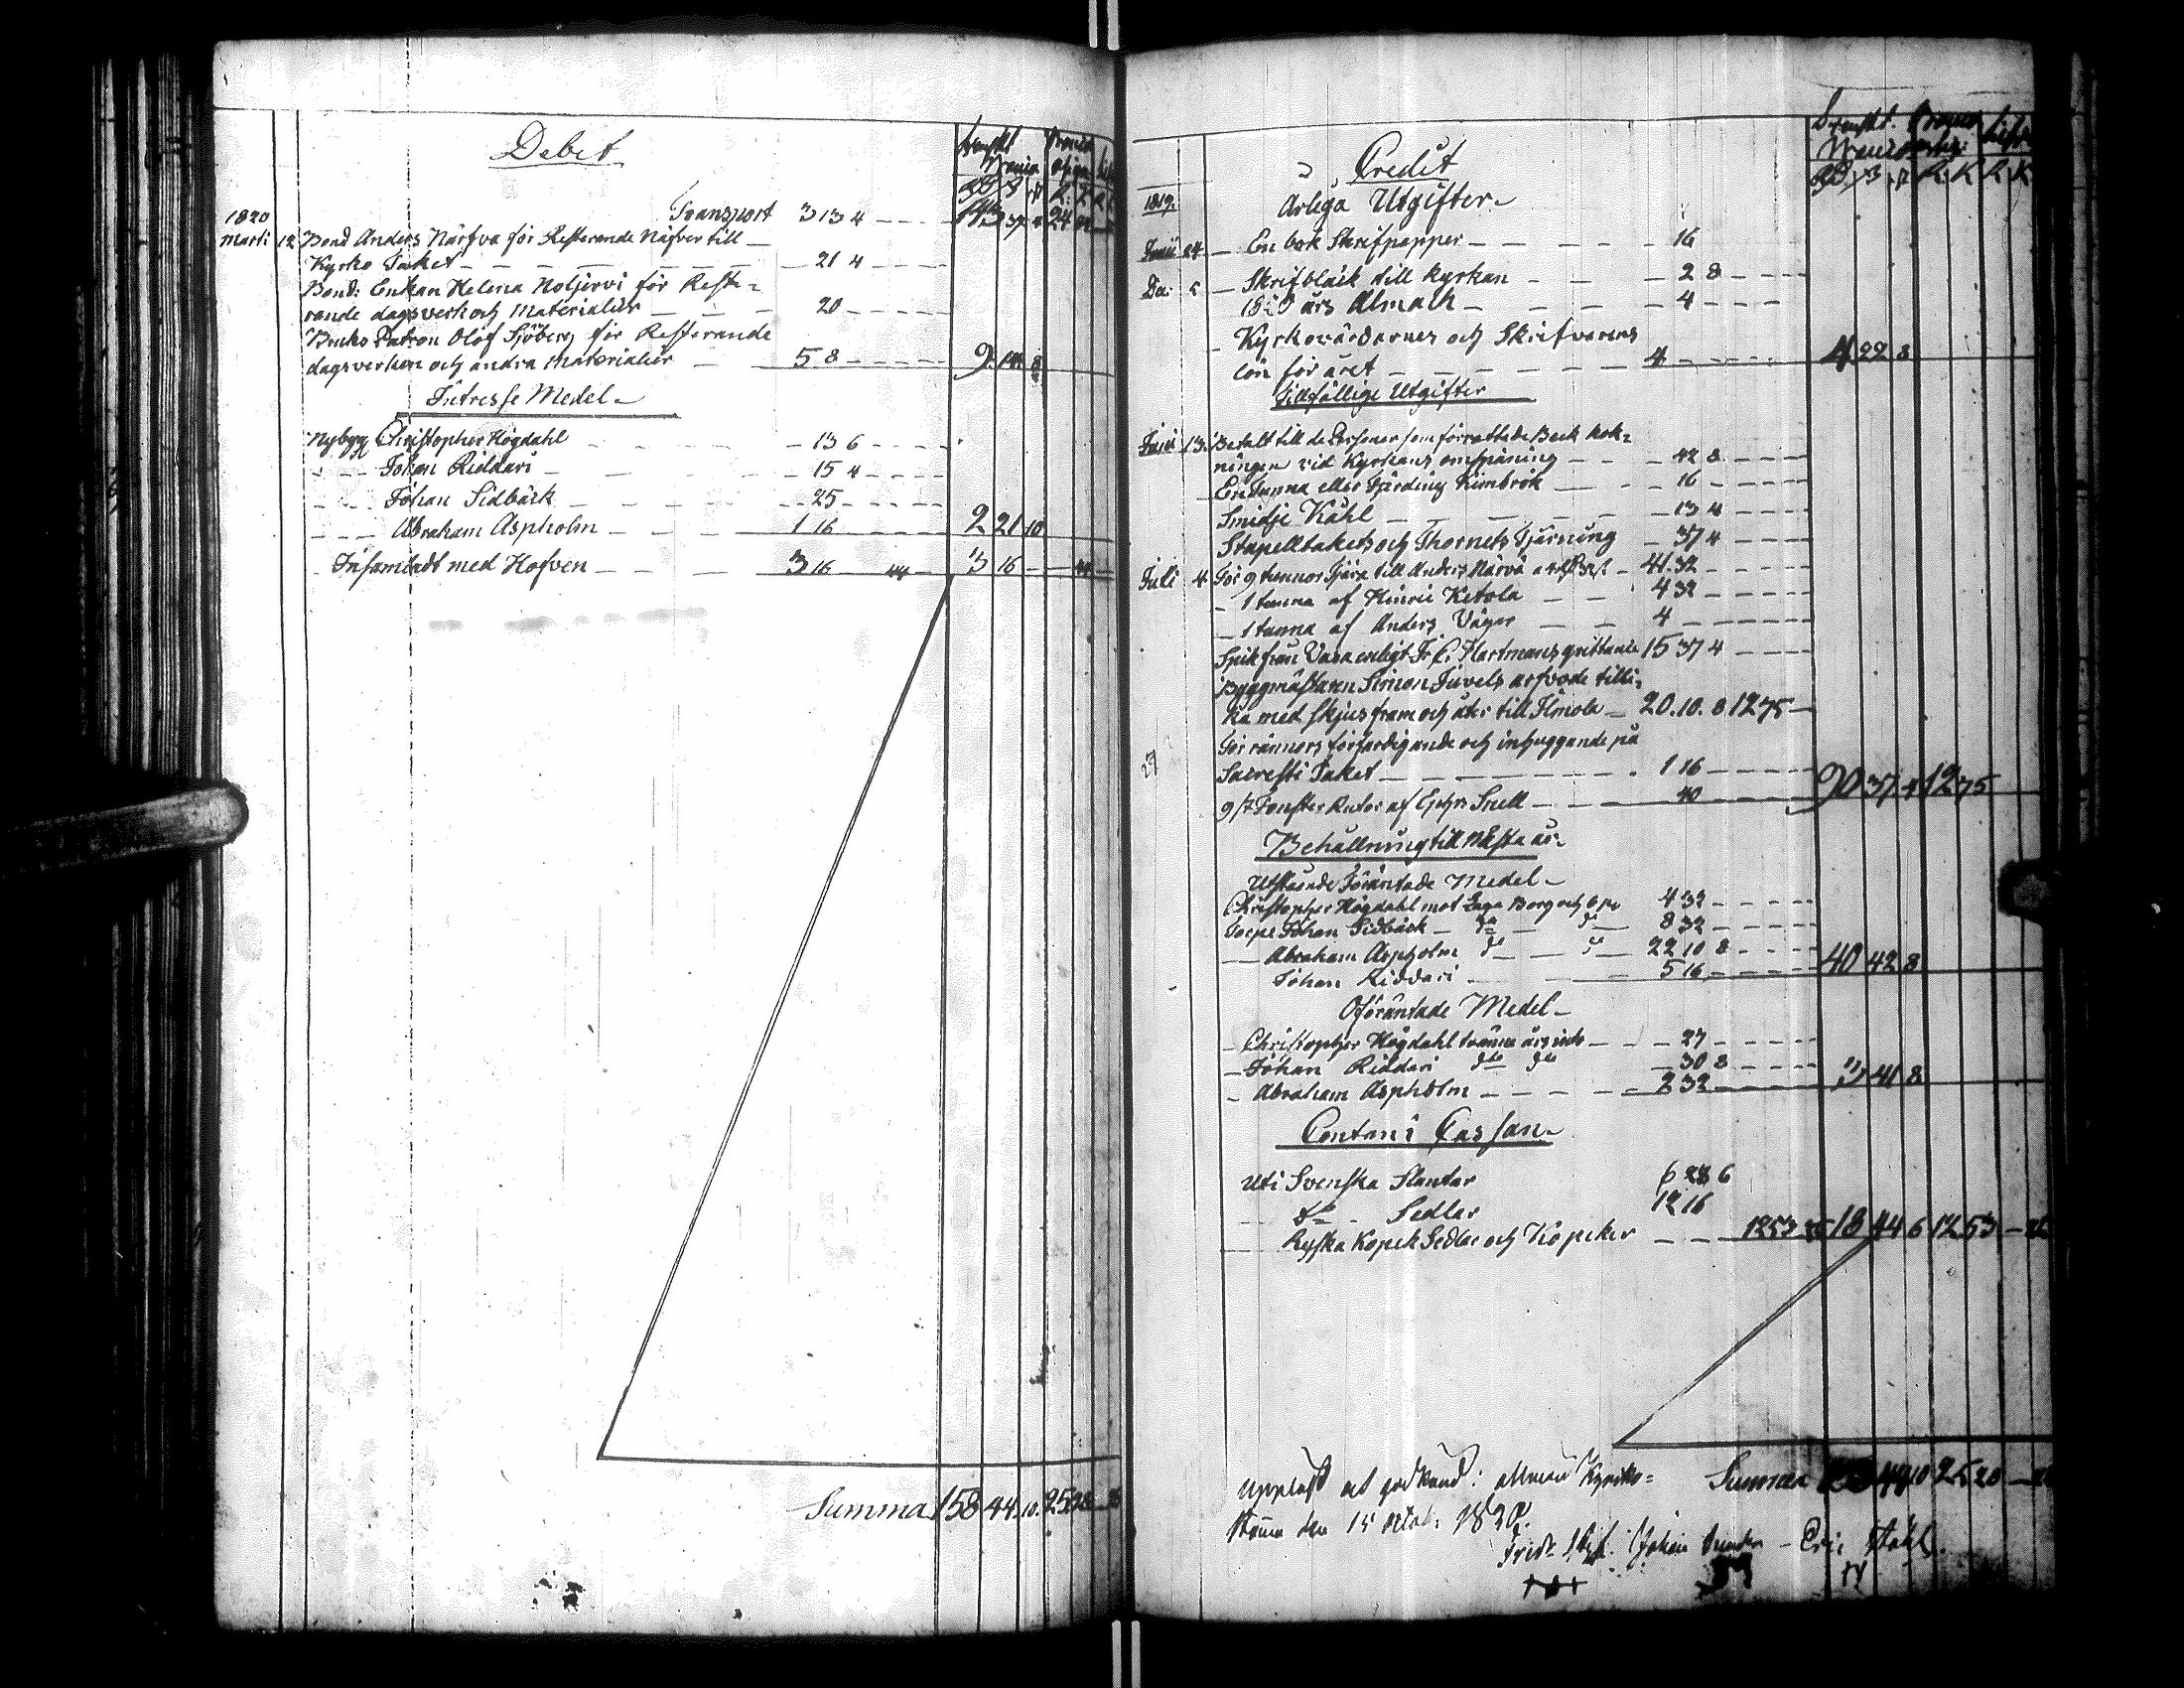 Debet
Svenskt
R S r R K
Transport 3 13 4 143 37 24
1820
Marti 12 Bond Anders Närfva för Resterande Näfver till
Kyrko Taket 21 4
Bond: Enkan Helena Noljervi för Reste-
rande dagsverk och Materialier 20
Bruks Patron Olof Sjöberg för Resterande
dagsverken och andra Materialier 5 8 9 14 8
Intresse Medel
Nybygg Christopher Högdahl 13 6
Johan Riddari 15 4
Johan Sidbäck 25
Abraham Aspholm 1 16 2 21 10
Insamladt med Hofven 3 16 44 3 16 44
Summa 158 44 10 25
Credit
Svenskt
1819 Årliga Utgifter
24 En bok Skrifpapper 16
De: 5 Skrifbläck till kyrkan 2 8
1820 års Almach 4
Kyrkovärdarnes och Skrifvarens
lön för året 4 4 22 8
Tillfällige Utgifter
13 Betalt till de Personer som förrättade Beck kok-
ningen vid Kyrkans omspåning 42 8
En Tunna eller Fjerding Kimrök 16
Smidje Kåhl 13 4
Stapelltakets och Thornets Tjärning 37 4
Juli 4 För 9 tunnor Tjära till Anders Närvä 41.32
1 tunna af Hinric Ketola 4 32
1 tunna af Anders Vägar 4
Spik från Vasa enligt Hartmans qvittance 15 37 4
Byggmästaren Simon Juvels arfvode tilli-
ka med skjus fram och åter till Ilmola 20.10.8 12 75
27 För rännors förfärdigande och inhuggande på
Sacresti Taket 1 16
9 st Fönster Rutor af Ephr Snell 40 90 37 4 12 75
Behållning till Nästa år
Utstående Förräntade Medel
Christopher Högdahl mot Laga Borg och 6 pc 4 32
Johan Sidbäck do do 8 32
Abraham Aspholm do do 22 10 8
Johan Riddari 5 16 40 42 8
Oförräntade Medel
Christopher Högdahl tvänne års intr 27
Johan Riddari dto dto 30 8
Abraham Aspholm 2 32 3 41 8
Contant i Cassan
Uti Svenska Slantar 6 28 6
do Sedlar 12 16
Ryska Kopek Sedlar och Kopeker 12 53 18 44 6 12 53
Summa 44 10 25 28
Uppläst och godkänd i allmän Kyrko-
stämma den 15 Octob. 1820.
Johan Eric Ståhl